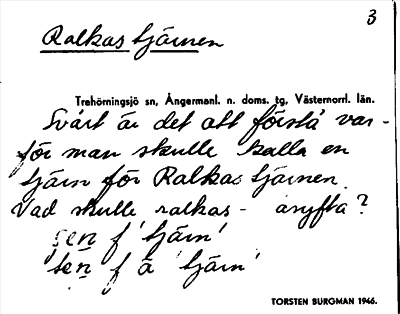 3
Ralkas tjärnen
Trehörningsjö sn, Ångermanl. n. doms. tg, Västernorrl. län.
Svårt är det att förstå var-
för man skulle kalla en
tjärn för Ralkas tjärnen.
Vad skulle ralkas- ansyfta?
sen f 'tjärn'
ten f ä 'tjärn'
TORSTEN BURGMAN 1946.